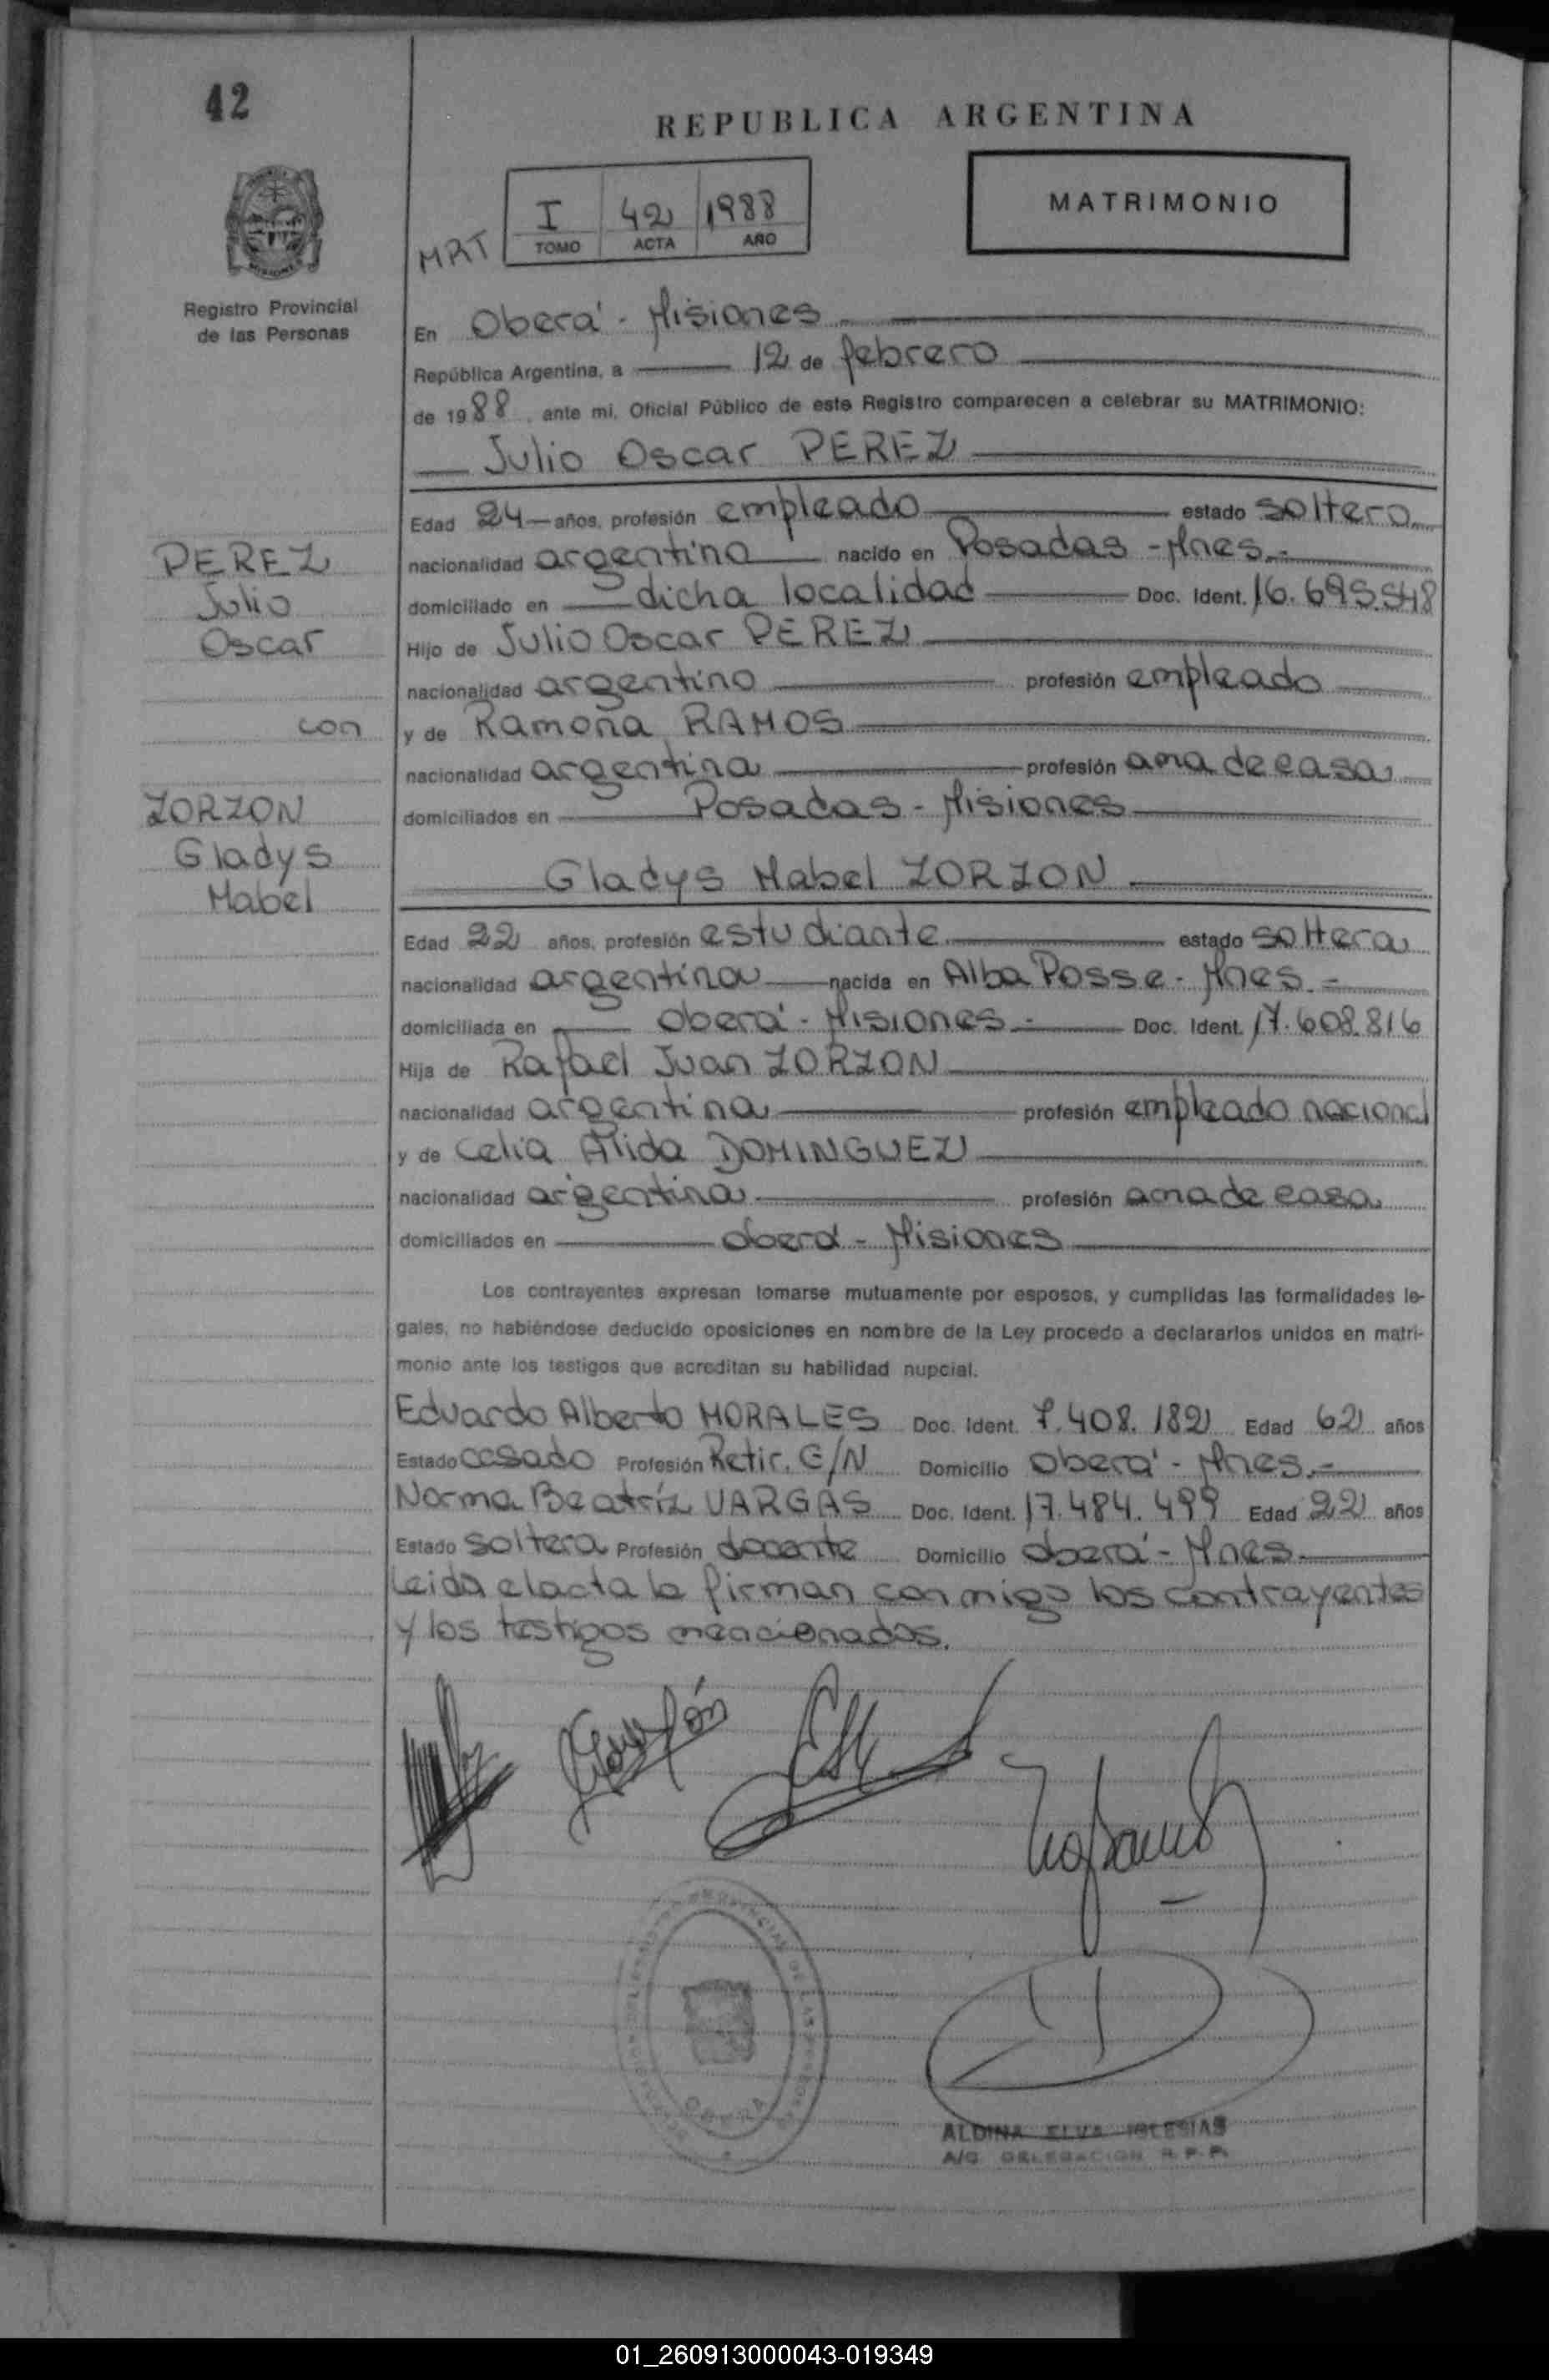 42
REPUBLICA ARGENTINA
MATRIMONIO
I 42 1988
TOMO ACTA AÑO
MRT
Registro Provincial
de las Personas
En Oberá - Misiones
República Argentina, a 12 de febrero
de 1988, ante mi, Oficial Público de este Registro comparecen a celebrar su MATRIMONIO:
Julio Oscar PEREZ
Edad 24 años, profesión empleado estado soltero
nacionalidad argentino nacido en Posadas - Mnes.-
domiciliado en dicha localidad Doc. Ident. 16.695.548
Hijo de Julio Oscar PEREZ
nacionalidad argentino profesión empleado
y de Ramona RAMOS
nacionalidad argentina profesión ama de casa
domiciliados en Posadas - Misiones
PEREZ
Julio
Oscar
con
ZORZON
Gladys
Mabel
Gladys Mabel ZORZON
Edad 22 años, profesión estudiante estado soltera
nacionalidad argentina nacida en Alba Posse - Mnes.-
domiciliada en Oberá - Misiones.- Doc. Ident. 17.608.816
Hija de Rafael Juan ZORZON
nacionalidad argentina profesión empleado nacional
y de Celia Alida DOMINGUEZ
nacionalidad argentina profesión ama de casa
domiciliados en Oberá - Misiones
Los contrayentes expresan tomarse mutuamente por esposos, y cumplidas las formalidades le-
gales, no habiéndose deducido oposiciones en nombre de la Ley procedo a declararlos unidos en matri-
monio ante los testigos que acreditan su habilidad nupcial.
Eduardo Alberto MORALES Doc. Ident. 7.408.182 Edad 62 años
Estado casado Profesión Retir. G/N Domicilio Oberá - Mnes.-
Norma Beatríz VARGAS Doc. Ident. 17.484.499 Edad 22 años
Estado soltera Profesión docente Domicilio Oberá - Mnes.
Leida el acta la firman conmigo los contrayentes
y los testigos mencionados.
OBERA
ALDINA ELVA IGLESIAS
A/C DELEGACION R.P.P.
01_260913000043-019349